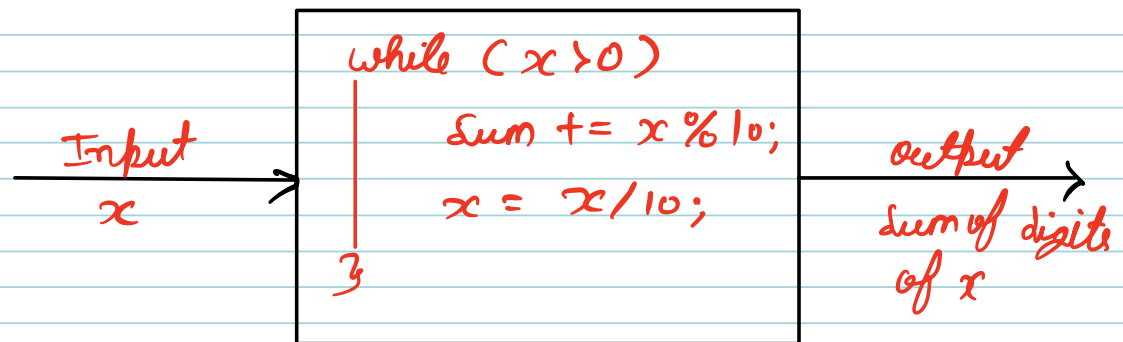 Input
x
while (x>0)
sum += x%10;
x = x/10;
}
output
sum of digits
of x